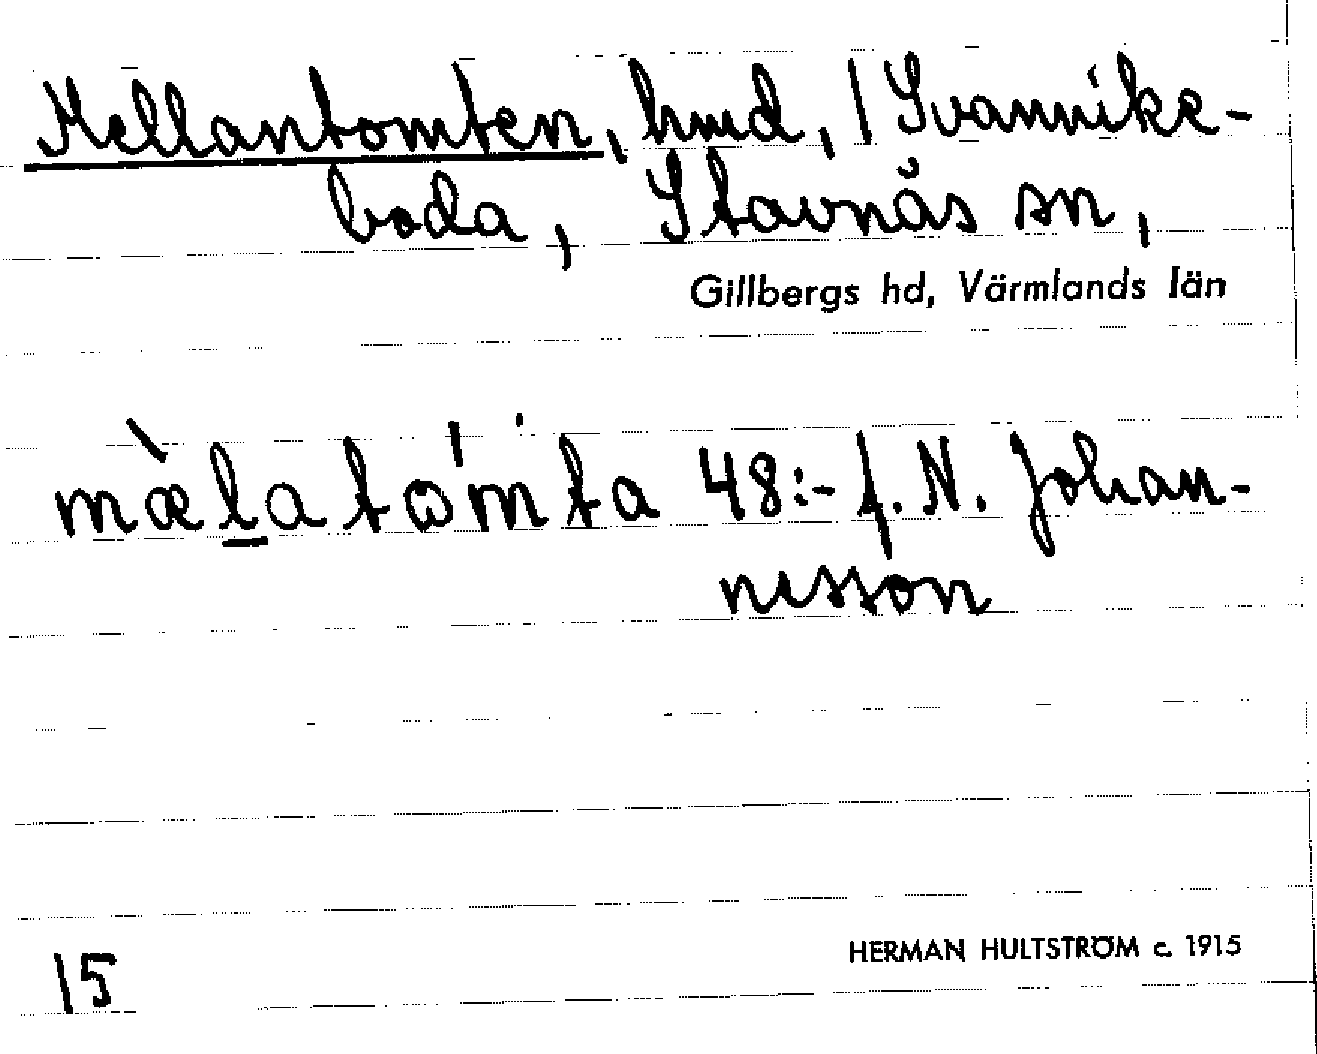 Mellantomten, hmd, / Svannike-
boda, Stavnäs sn,
Gillbergs hd, Värmlands län
mæ̀latómta 48:- f. N. Johan-
nesson
15
HERMAN HULTSTRÖM c. 1915